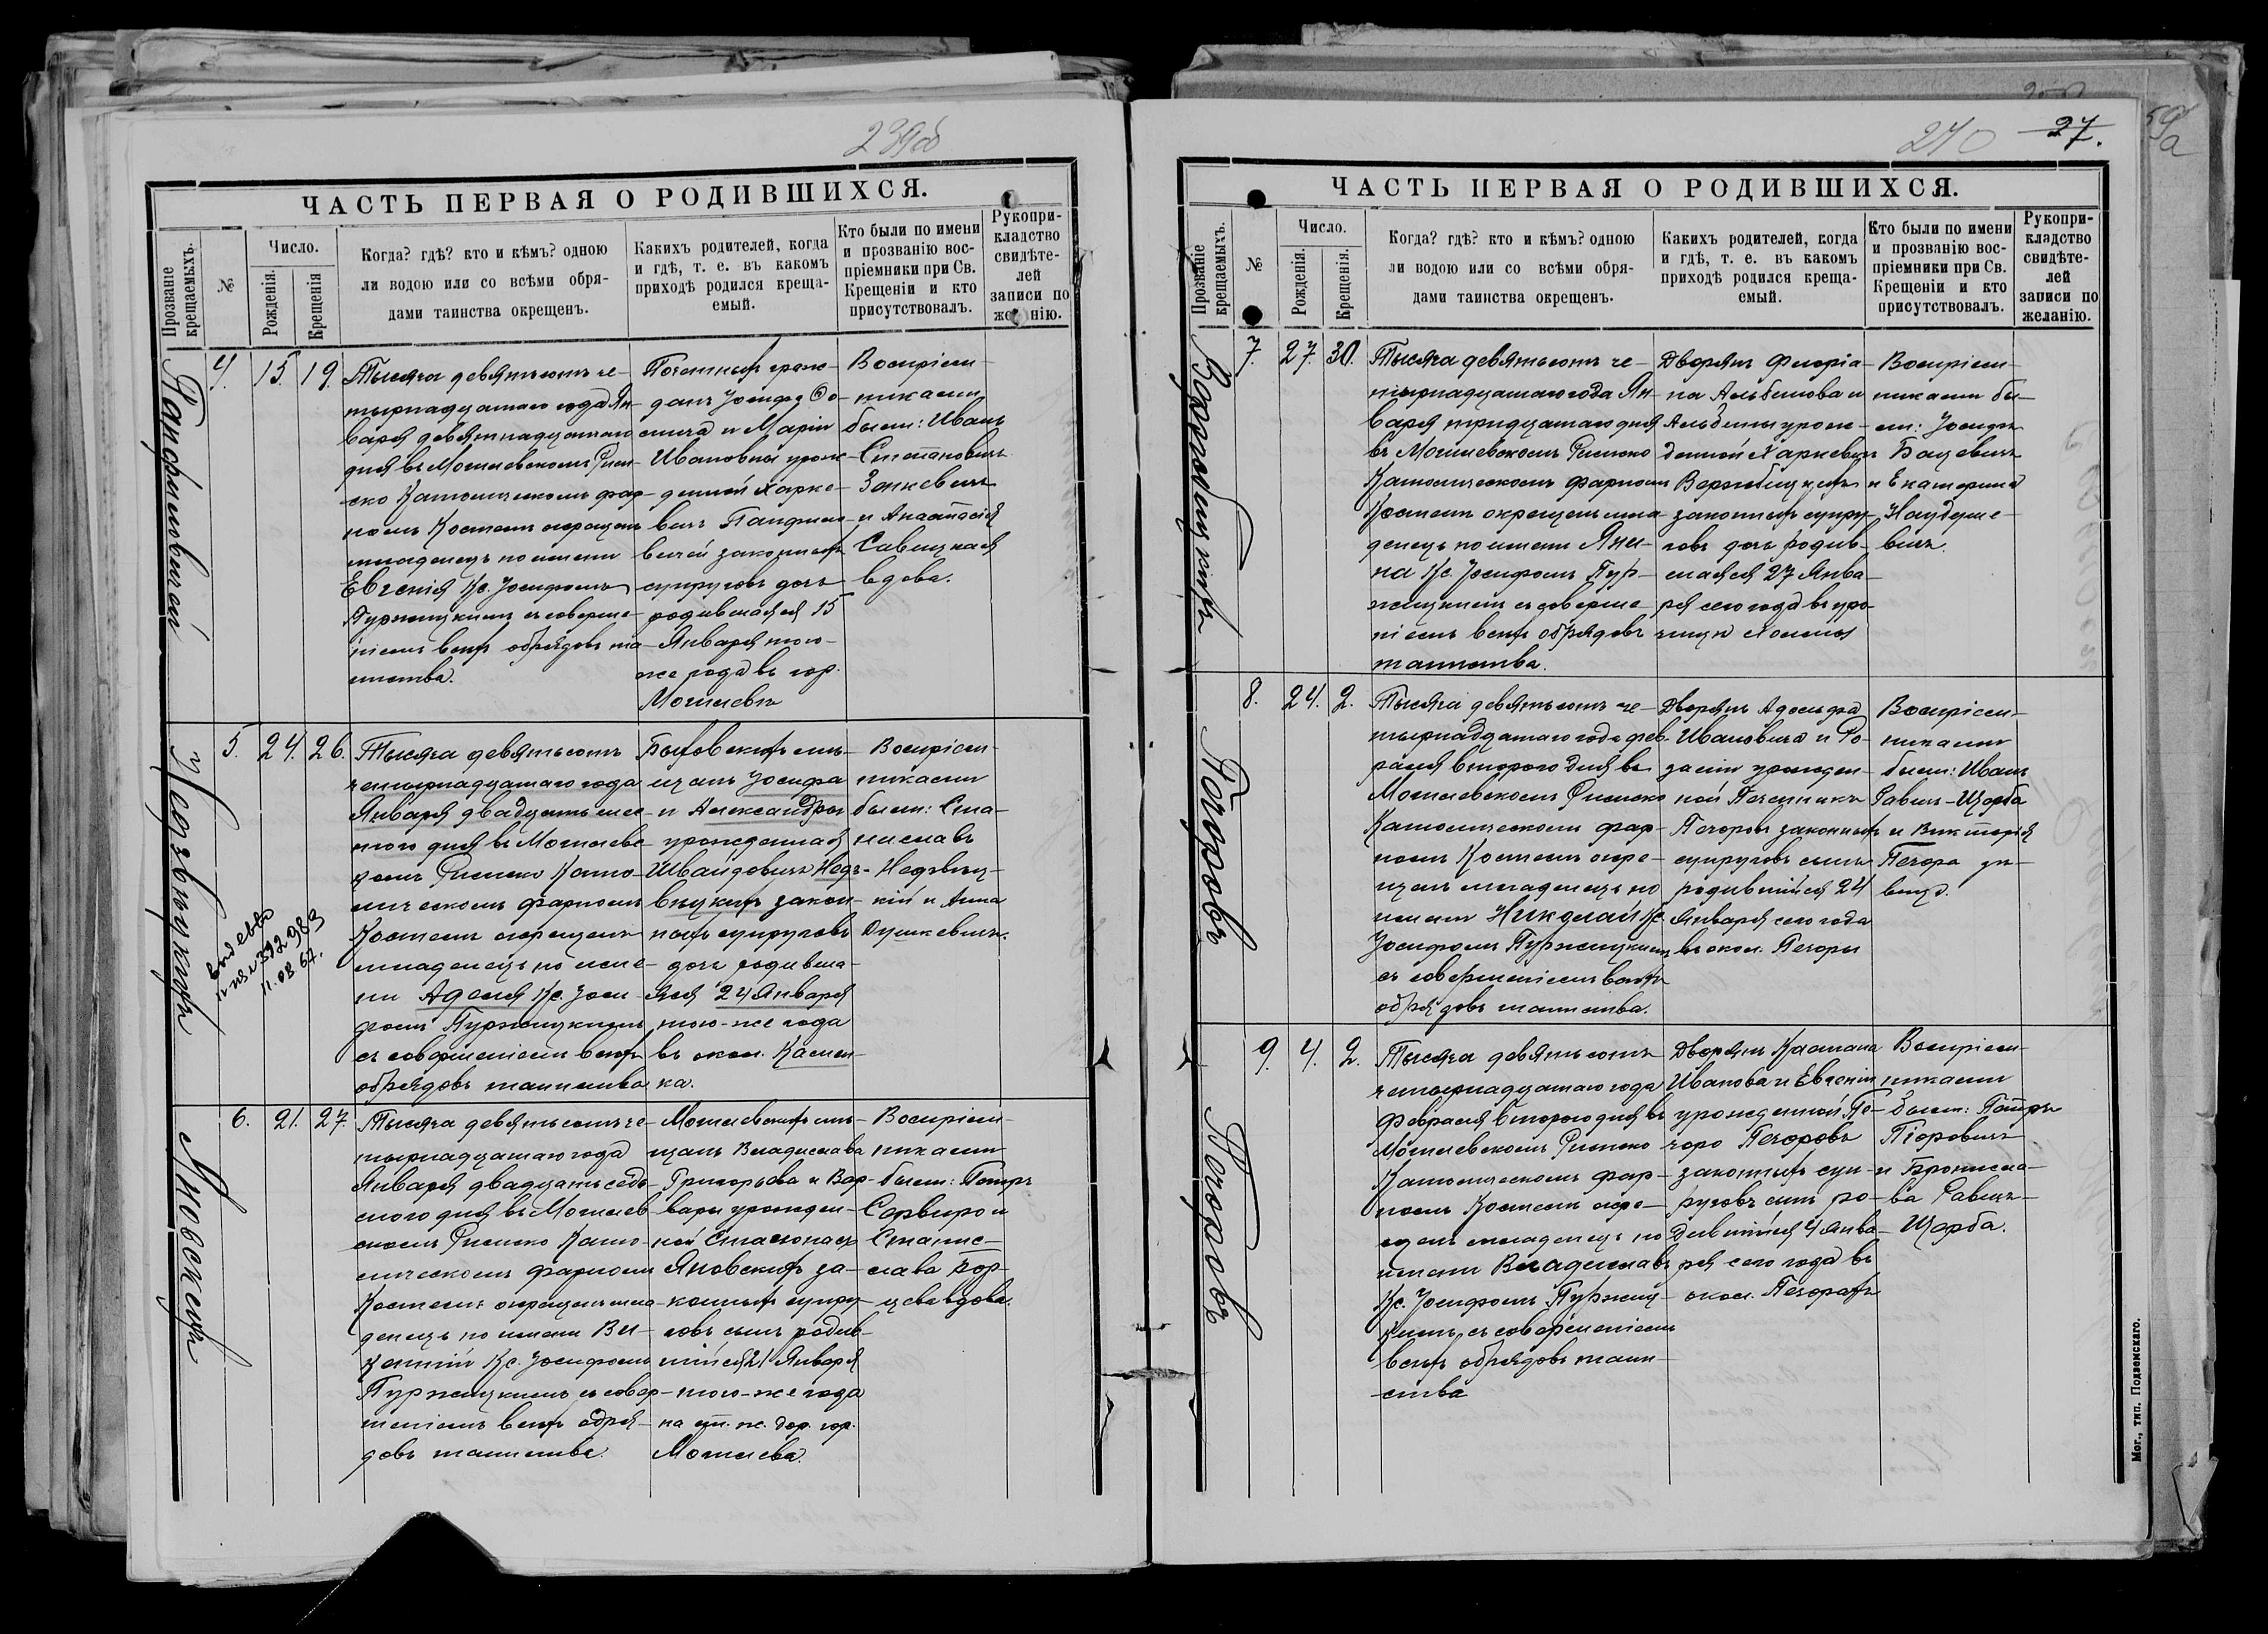 239об
ЧАСТЬ ПЕРВАЯ О РОДИВШИХСЯ.
Прозваніе крещаемыхъ.
№
Число.
Рожденія.
Крещенія
Когда? гдѣ? кто и кѣмъ? одною
ли водою или со всѣми обря-
дами таинства окрещенъ.
Какихъ родителей, когда
и гдѣ, т. е. въ какомъ
приходѣ родился креща-
емый.
Кто были по имени
и прозванію вос-
пріемники при Св.
Крещеніи и кто
присутствовалъ.
Рукопри-
кладство
свидѣте-
лей
записи по
же нію.
Панфиловичей
4.
15.
19.
Тысяча девятьсотъ че-
тырнадцатаго года Ян-
варя девятнадцатаго
дня въ Могилевскомъ Рим-
ско Католическомъ фар-
номъ Костелѣ окрещенъ
младенецъ по имени
Евгенія Кс. Іосифомъ
Пуржицкимъ съ соверше-
ніемъ всѣхъ обрядовъ та-
инства.
Почетныхъ граж-
данъ Іосифа
и Маріи
Ивановны урож-
денной Харке-
вичъ Панфило-
вичей законныхъ
супруговъ дочь
родившаяся 15
Января того-
же года въ гор.
Могилевѣ
Воспріем-
никами
были: Иванъ
Степановичъ
Занкевичъ
и Анастасія
Савицкая
вдова.
Недзвѣцкихъ
5.
24.
26.
Тысяча девятьсотъ
четырнадцатаго года
Января двадцать шес-
того дня въ Могилевс-
комъ Римско Като-
лическомъ фарномъ
Костелѣ окрещенъ
младенецъ по име-
ни Аделя Кс. Іоси-
фомъ Пуржицкимъ
съ совершеніемъ всѣхъ
обрядовъ таинства
Быховскихъ мѣ-
щанъ Іосифа
и Александры
урожденная
Швайдовичъ Недз-
вѣцкихъ закон-
ныхъ супруговъ
дочь родивша-
яся 24 Января
того-же года
въ окол. Камен-
ка.
Воспріем-
никами
были: Ста-
ниславъ
Недзвѣц-
кій и Анна
Душкевичъ.
11.08.67.
Яновскихъ
6.
21.
27.
Тысяча девятьсотъ че-
тырнадцатаго года
Января двадцать седь-
мого дня въ Могилев-
скомъ Римско Като-
лическомъ фарномъ
Костелѣ окрещенъ мла-
денецъ по имени Ви-
кентій Кс. Іосифомъ
Пуржицкимъ съ совер-
шеніемъ всѣхъ обря-
довъ таинства.
Могилевскихъ мѣ-
щанъ Владислава
Григорьева и Вар-
вары урожден-
ной
Яновскихъ за-
конныхъ супру-
говъ сынъ родив-
шійся 21 Января
того-же года
на ст. ж. дор. гор.
Могилева.
Воспріем-
никами
были: Петръ
Сервиро и
Станис-
лава Бор-
цева вдова.
240
27.
ЧАСТЬ ПЕРВАЯ О РОДИВШИХСЯ.
Прозваніе крещаемыхъ.
№
Число.
Рожденія.
Крещенія.
Когда? гдѣ? кто и кѣмъ? одною
ли водою или со всѣми обря-
дами таинства окрещенъ.
Какихъ родителей, когда
и гдѣ, т. е. въ какомъ
приходѣ родился креща-
емый.
Кто были по имени
и прозванію вос-
пріемники при Св.
Крещеніи и кто
присутствовалъ.
Рукопри-
кладство
свидѣте-
лей
записи по
желанію.
Вержбицкихъ
7.
27.
30.
Тысяча девятьсотъ че-
тырнадцатаго года Ян-
варя тридцатаго дня
въ Могилевскомъ Римско
Католическомъ фарномъ
Костелѣ окрещенъ мла-
денецъ по имени Яни-
на Кс. Іосифомъ Пур-
жицкимъ съ соверше-
ніемъ всѣхъ обрядовъ
таинства.
Дворянъ Флоріа-
на Альбинова и
Альбины урож-
денной Харкевичъ
Вержбицкихъ
законныхъ супру-
говъ дочь родив-
шаяся 27 Янва-
ря сего года въ уро-
чищи Холмы
Воспріем-
никами бы-
ли: Іосифъ
Бацевичъ
и Екатерина
Нацдуне-
вичъ.
Печоровъ
8.
24.
2.
Тысяча девятьсотъ че-
тырнадцатаго года фев-
раля второго дня въ
Могилевскомъ Римско
Католическомъ фар-
номъ Костелѣ окре-
щенъ младенецъ по
имени Николай Кс.
Іосифомъ Пуржицкимъ
съ совершеніемъ всѣхъ
обрядовъ таинства.
Дворянъ Адольфа
Ивановича и Ро-
заліи урожден-
ной
Печоры законныхъ
супруговъ сынъ
родившійся 24
Января сего года
въ окол. Печоры
Воспріем-
никами
были: Иванъ
Равичъ-Щерба
и Викторія
Печора дѣ-
вица.
Печоровъ
9.
4.
2.
Тысяча девятьсотъ
четырнадцатаго года
Февраля второго дня въ
Могилевскомъ Римско
Католическомъ фар-
номъ Костелѣ окре-
щенъ младенецъ по
имени Владиславъ
Кс. Іосифомъ Пуржиц-
кимъ съ совершеніемъ
всѣхъ обрядовъ таин-
ства
Дворянъ Каетана
Иванова и Евгеніи
урожденной Пе-
чоро Печоровъ
законныхъ суп-
руговъ сынъ ро-
дившійся 4 Янва-
ря сего года въ
окол. Печорахъ
Воспріем-
никами
были: Петръ
Піоровичъ
и Бронисла-
ва Равичъ-
Щерба.
Мог., тип. Подземскаго.